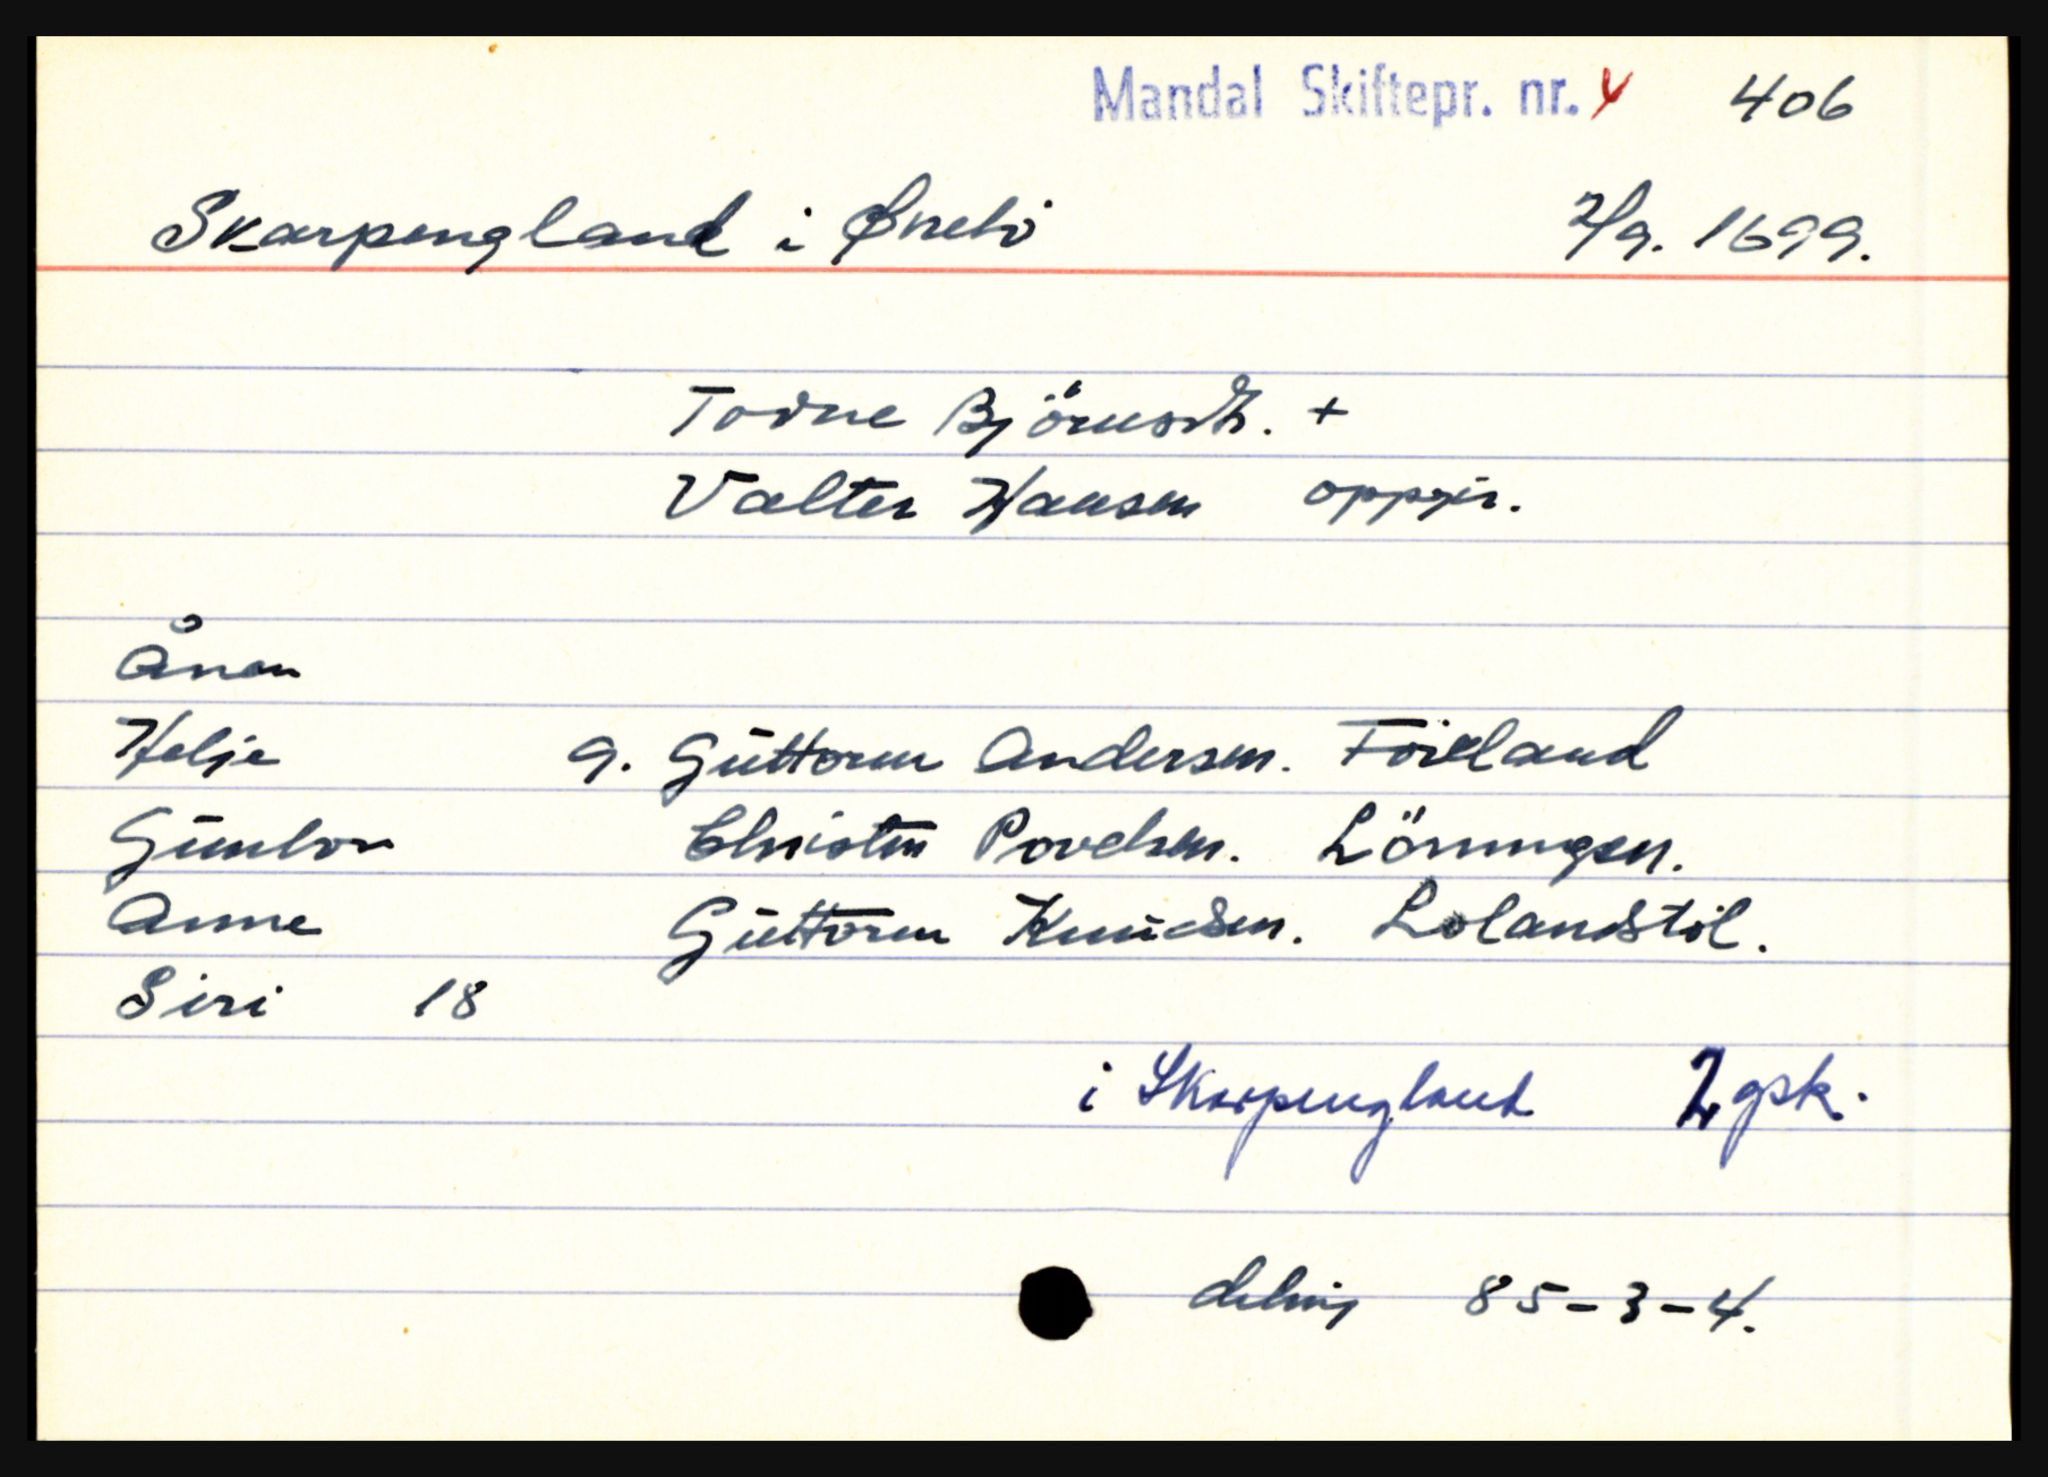 Mandal Skiftepr. nr. 4 406
Skarpengland i Øvrebö 2/9. 1699.
Torne Björnsdtr. +
Valter Hansen oppgir.
Ånen
Helje g. Guttorm Andersen. Föreland
Gunbor Christen Povelsen. Löningsn.
Anne Guttorm Knudsen. Lolandstöl.
Siri 18
i Skarpengland 2 gsk.
deling 85-3-4.